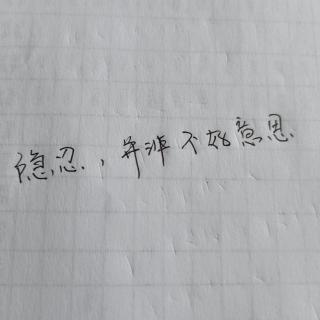 隐忍，并非不好意思